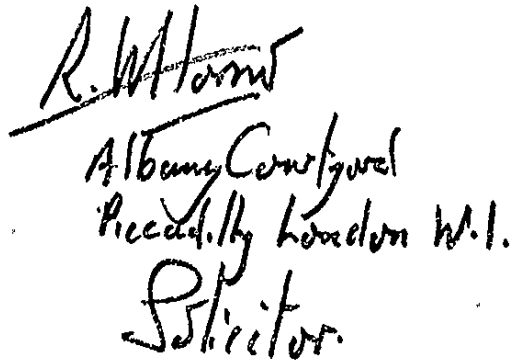 Albany Courtyard
Piccadilly London W.1.
Solicitor.